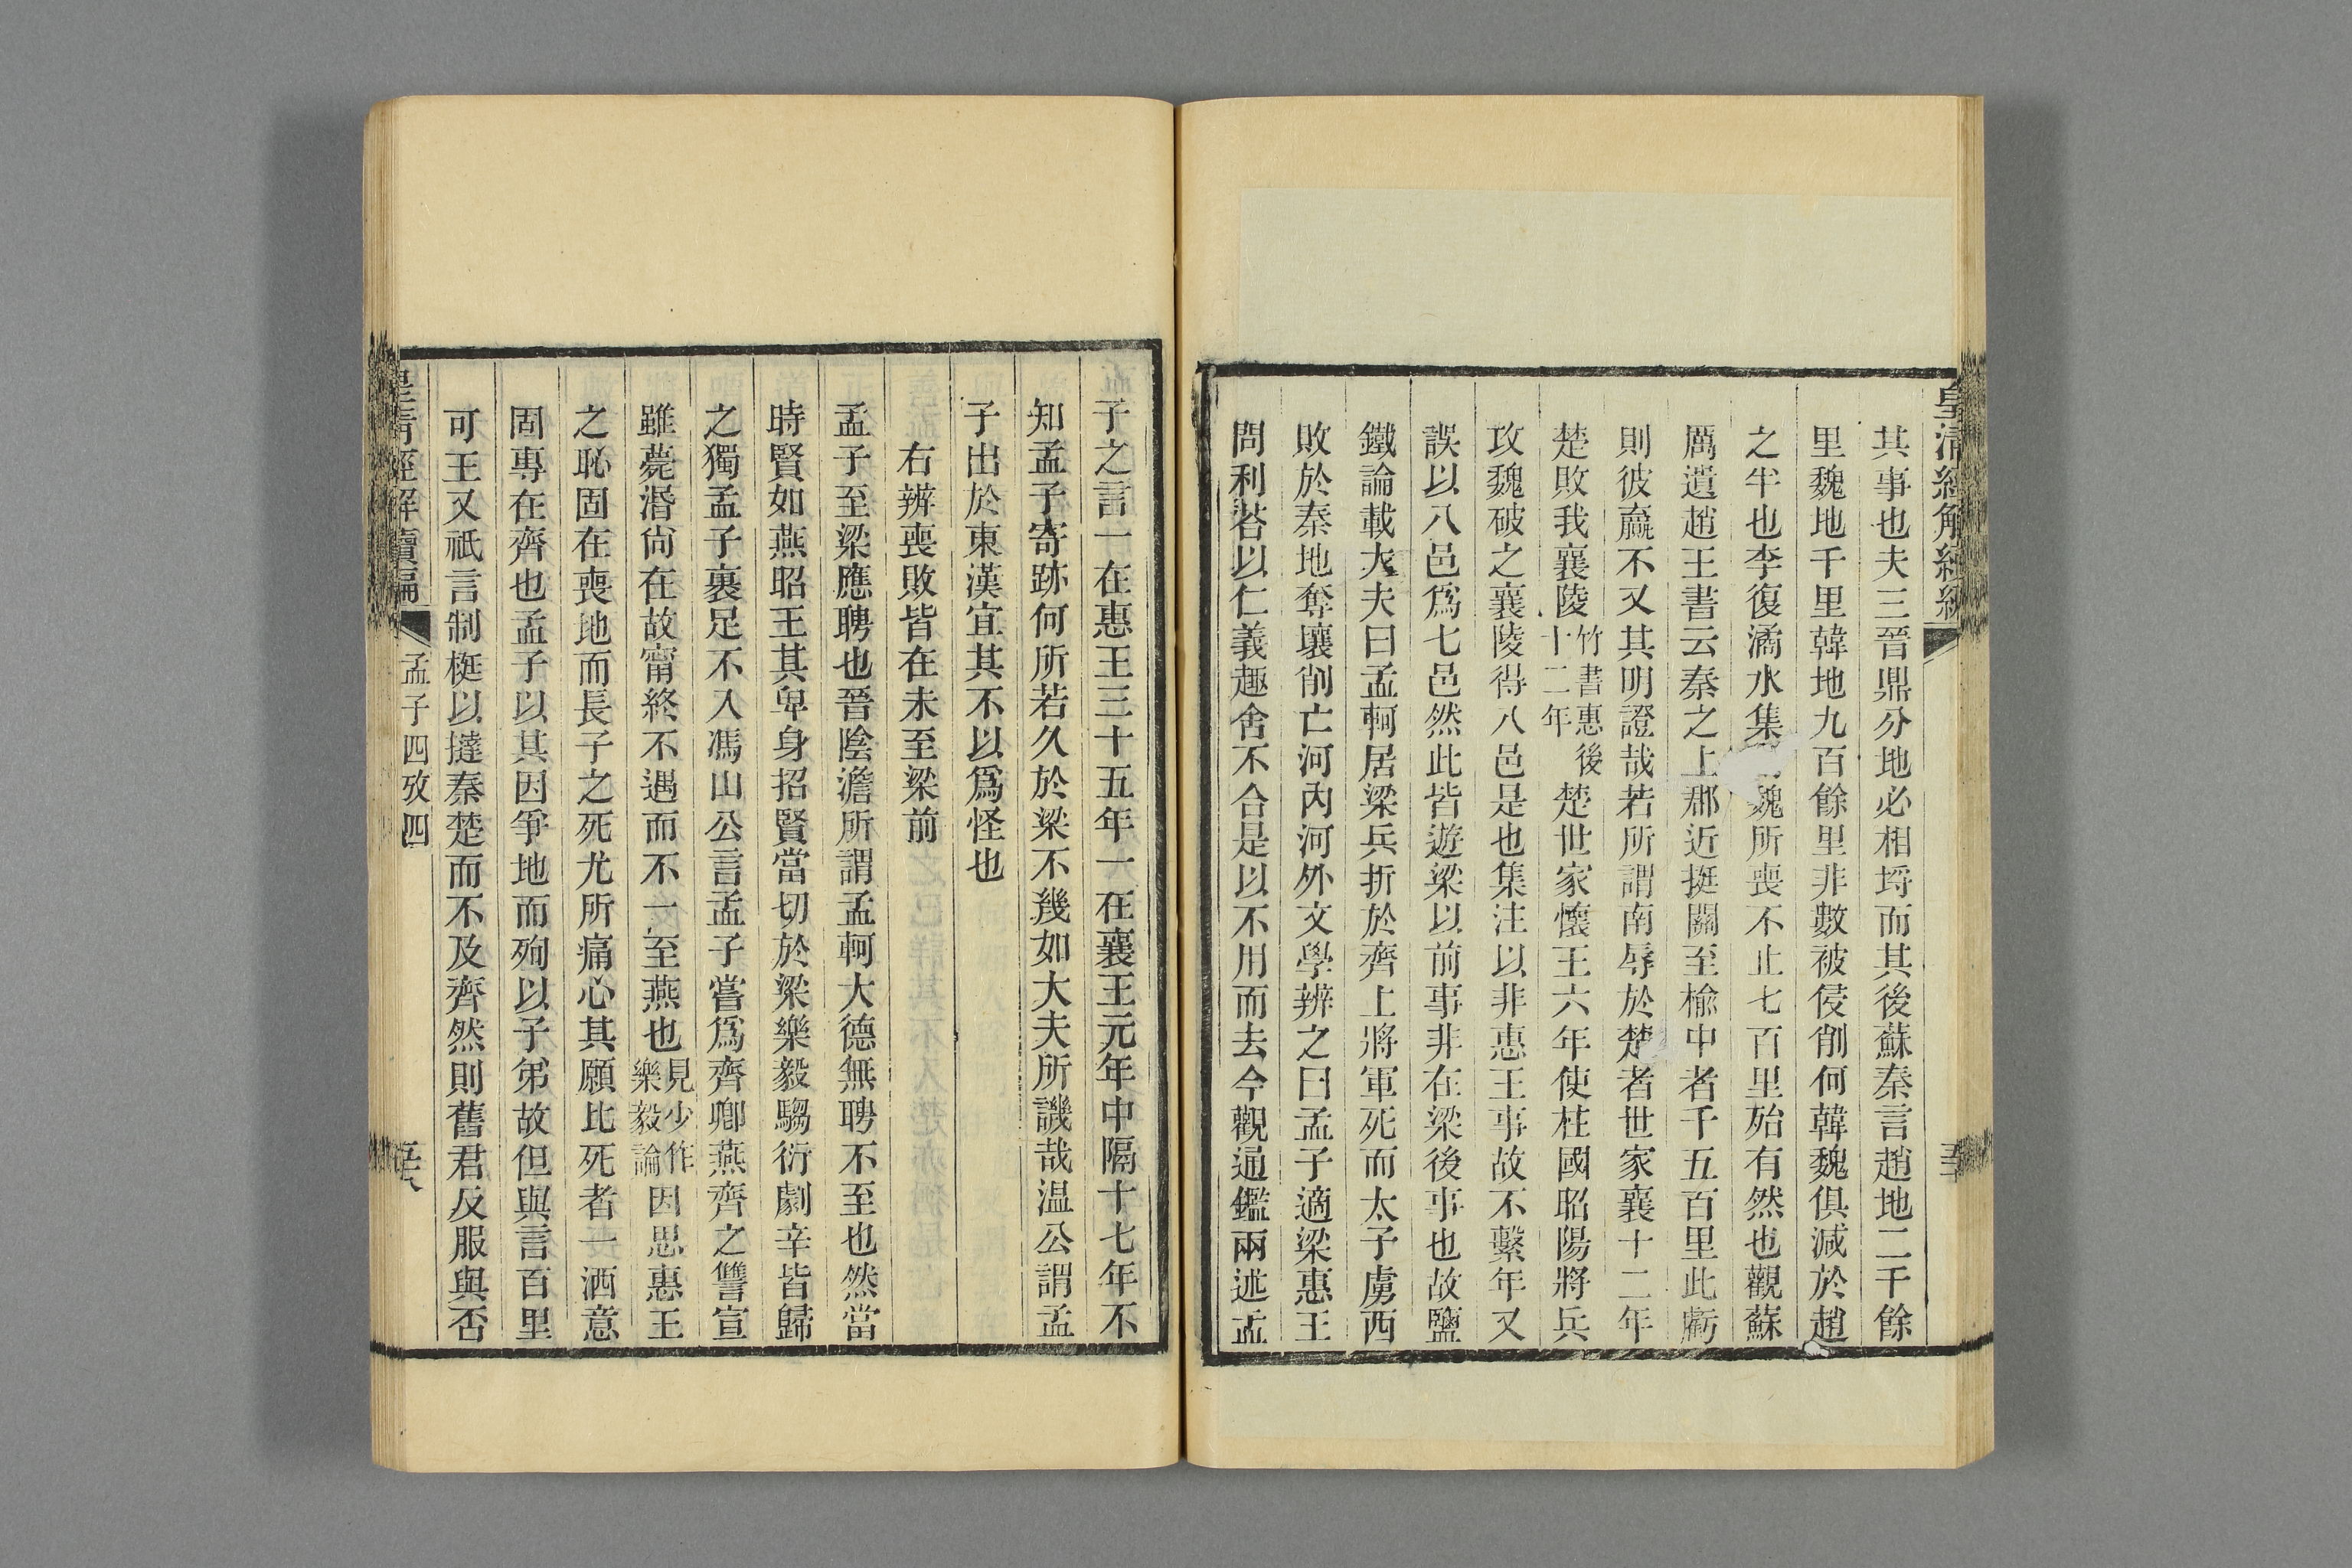 其事也夫三晉鼎分地必相埒而其後蘇秦言趙地二千餘
里魏地千里韓地九百餘里非數被侵削何韓魏俱減於趙
之半也李復潏水集魏所喪不止七百里殆有然也觀蘇
厲遺趙王書云秦之上郡近挺關至榆中者千五百里此虧
則彼嬴不又其明證哉若所謂南辱於楚者世家襄十二年
楚敗我襄陵竹書惠後十二年楚世家懷王六年使柱國昭陽將兵
攻魏破之襄陵得八邑是也集注以非惠王事故不繫年又
誤以八邑爲七邑然此皆遊梁以前事非在梁後事也故鹽
鐵論載大夫曰孟軻居梁兵折於齊上將軍死而太子虜西
敗於秦地奪壤削亡河內河外文學辨之曰孟子適梁惠王
問利荅以仁義趣舍不合是以不用而去今觀通鑑兩述孟
子之言一在惠王三十五年一在襄王元年中隔十七年不
知孟子寄跡何所若久於梁不幾如大夫所譏哉温公謂孟
子出於東漢宜其不以爲怪也
右辨喪敗皆在未至梁前
孟子至梁應聘也晉陰澹所謂孟軻大德無聘不至也然當
時賢如燕昭王其卑身招賢當切於梁樂毅騶衍劇辛皆歸
之獨孟子裹足不入馮山公言孟子嘗爲齊卿燕齊之讐宣
雖薨湣尙在故甯終不遇而不一至燕也見少作樂毅論因思惠王
之恥固在喪地而長子之死尤所痛心其願比死者一洒意
固專在齊也孟子以其因爭地而殉以子弟故但與言百里
可王又祇言制梃以撻秦楚而不及齊然則舊君反服與否
皇清經解續編
孟子四攷四